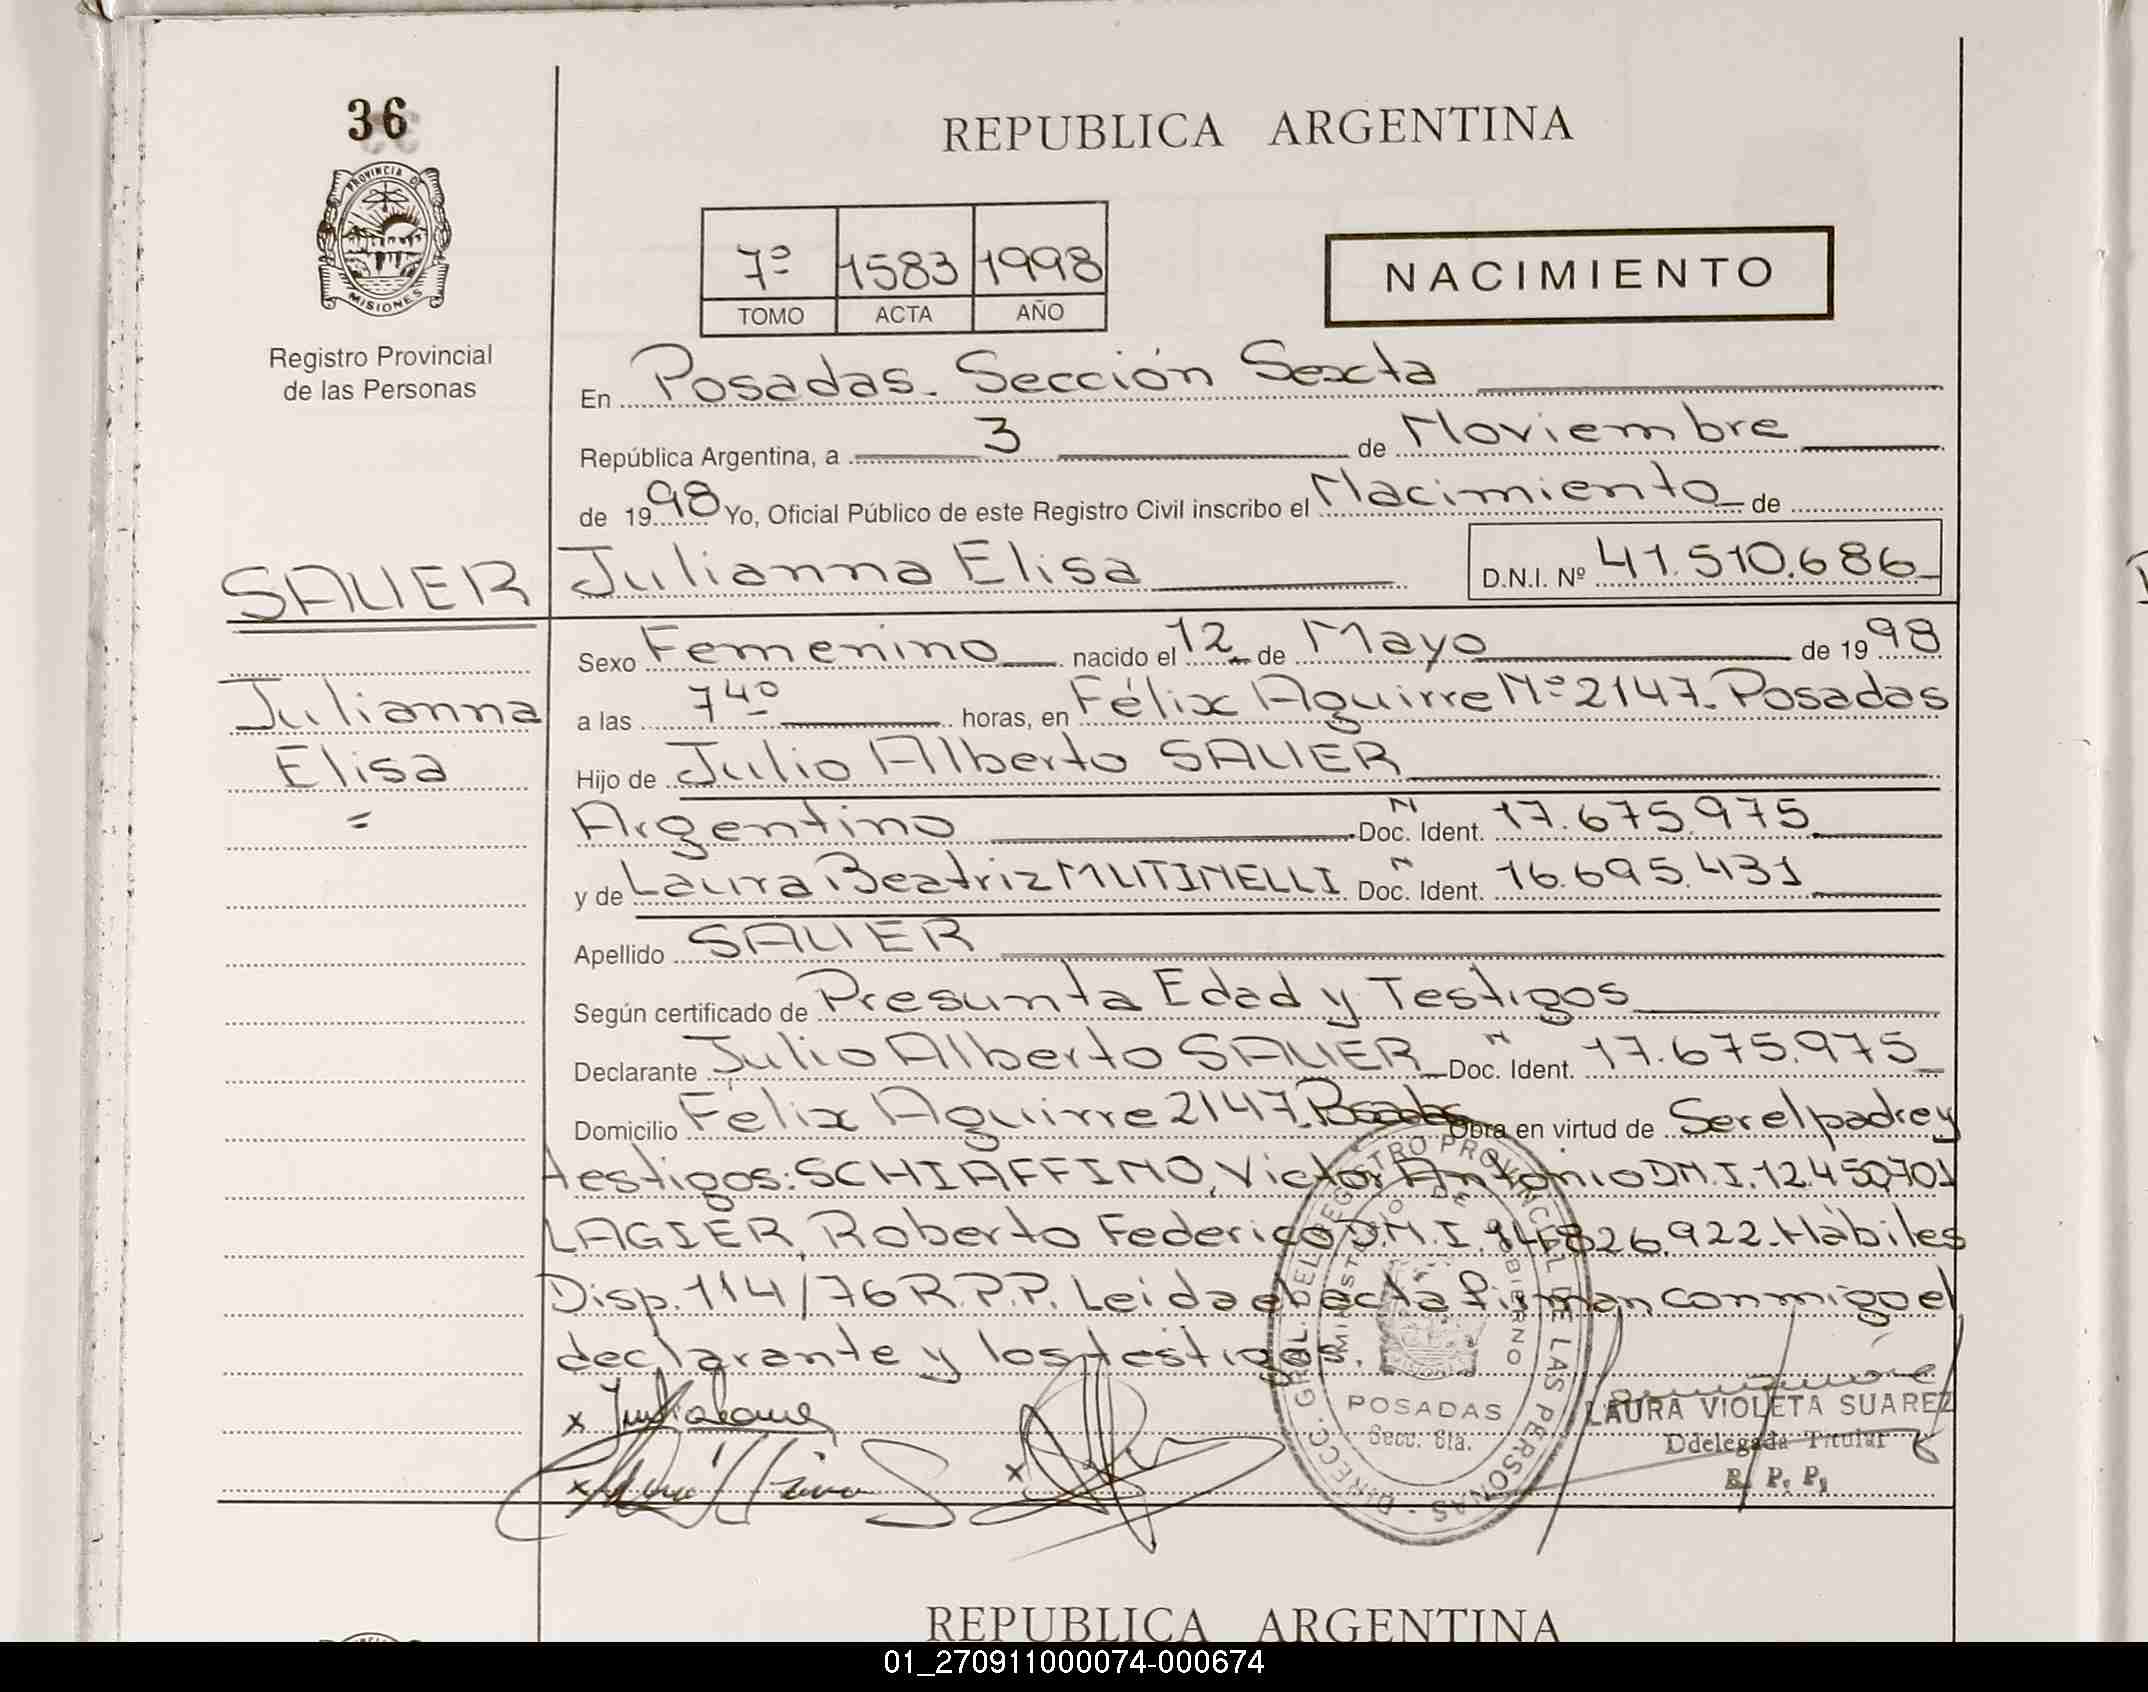 36
PROVINCIA DE
MISIONES
Registro Provincial
de las Personas
REPUBLICA ARGENTINA
7º 1583 1998
TOMO ACTA AÑO
NACIMIENTO
En Posadas. Sección Sexta
República Argentina, a 3 de Noviembre
de 1998 Yo, Oficial Público de este Registro Civil inscribo el Nacimiento de
SAUER Julianna Elisa D.N.I. Nº 41.510.686
Sexo Femenino nacido el 12 de Mayo de 1998
Julianna a las 7 40 horas, en Félix Aguirre Nº 2147. Posadas
Elisa Hijo de Julio Alberto SAUER
Argentino Doc. N Ident. 17.675.975
y de Laura Beatriz MUTINELLI Doc. N Ident. 16.695.431
Apellido SAUER
Según certificado de Presunta Edad y Testigos
Declarante Julio Alberto SAUER Doc. N Ident. 17.675.975
Domicilio Félix Aguirre 2147. Posadas Obra en virtud de Ser el padre y
testigos: SCHIAFFINO, Victor Antonio D.N.I. 12.450.701
LAGIER, Roberto Federico D.N.I. 826.922. Hábiles
Disp. 114/76 R.P.P. Leida el acta firman conmigo el
declarante y los testigos.
DIRECC. GRAL. DEL REGISTRO PROVINCIAL DE LAS PERSONAS
MINISTERIO DE GOBIERNO
POSADAS
Secc. 6ta.
LAURA VIOLETA SUAREZ
Ddelegada Titular
R. P. P.
REPUBLICA ARGENTINA
01_270911000074-000674